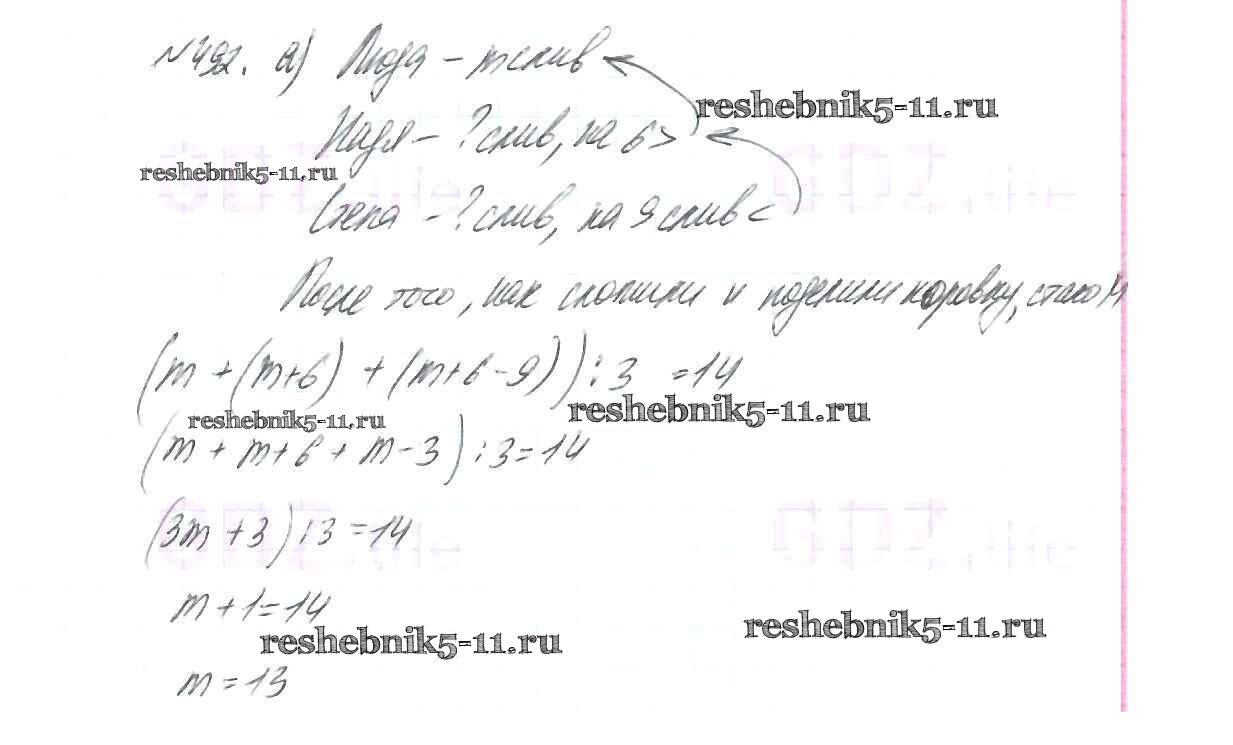 №492. а) Люда – m слив
reshebnik5-11.ru
Надя – ? слив, на 6 >
reshebnik5-11.ru
Гена – ? слив, на 9 слив <
После того, как сложили и поделили поровну, стало 14
(m + (m+6) + (m+6-9)) : 3 = 14
reshebnik5-11.ru reshebnik5-11.ru
(m + m+6 + m-3) : 3 = 14
(3m + 3) : 3 = 14
m + 1 = 14
reshebnik5-11.ru reshebnik5-11.ru
m = 13